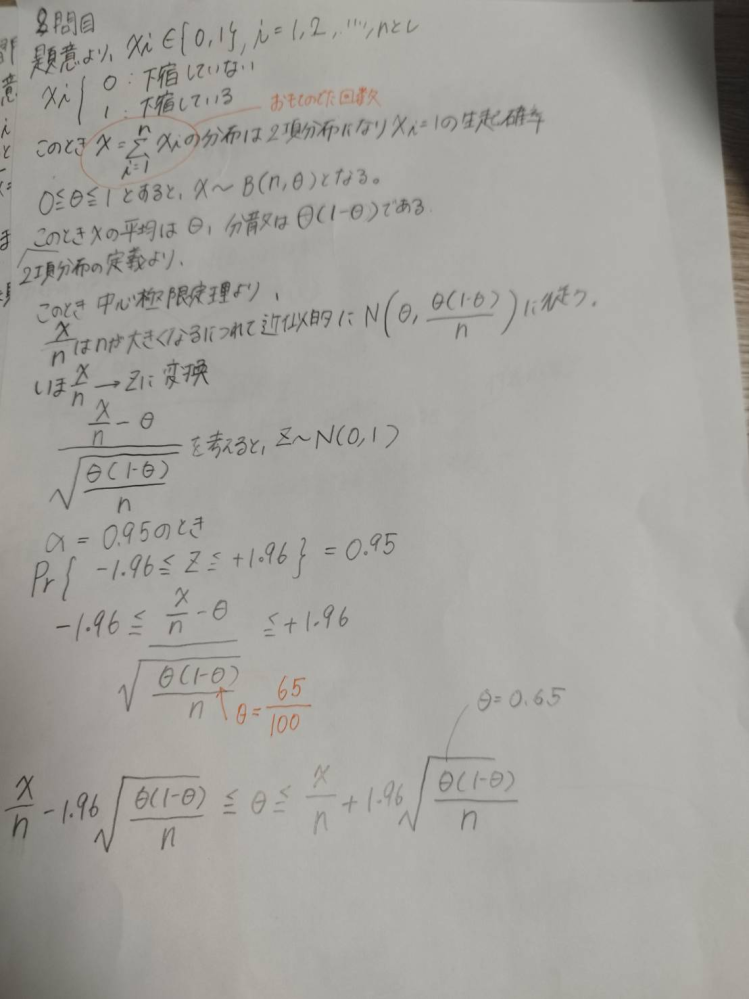 8問目
題意より、xi ∈ {0,1}, i = 1,2, …, nとし
xi { 0 : 下宿していない
1 : 下宿している
おもてのでた回数
このとき x = Σ_{i=1}^{n} xi の分布は2項分布になり xi = 1の生起確率
0 ≦ θ ≦ 1 とすると、x ~ B(n, θ)となる。
このとき xの平均は θ, 分散は θ(1-θ)である.
2項分布の定義より、
このとき 中心極限定理より、
x/n はnが大きくなるにつれて近似的に N(θ, θ(1-θ)/n) に従う.
いま x/n → Zに変換
(x/n - θ) / √(θ(1-θ)/n) を考えると, Z~N(0,1)
α = 0.95のとき
Pr{ -1.96 ≦ Z ≦ +1.96 } = 0.95
-1.96 ≦ (x/n - θ) / √(θ(1-θ)/n) ≦ +1.96
θ = 65/100
θ = 0.65
x/n - 1.96 √(θ(1-θ)/n) ≦ θ ≦ x/n + 1.96 √(θ(1-θ)/n)